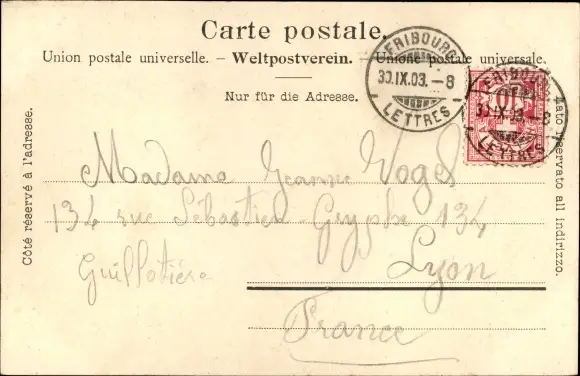 Carte postale.
Union postale universelle. – Weltpostverein. – Unione postale universale.
Nur für die Adresse.
FRIBOURG
30.IX.03.–8
LETTRES
FRIBOURG
30.IX.03.–8
LETTRES
10
Côté réservé à l'adresse.
Lato riservato all indirizzo.
Madame Jeanne Vogel
134 rue Sébastien-Gryphe 134
Guillotière Lyon
France